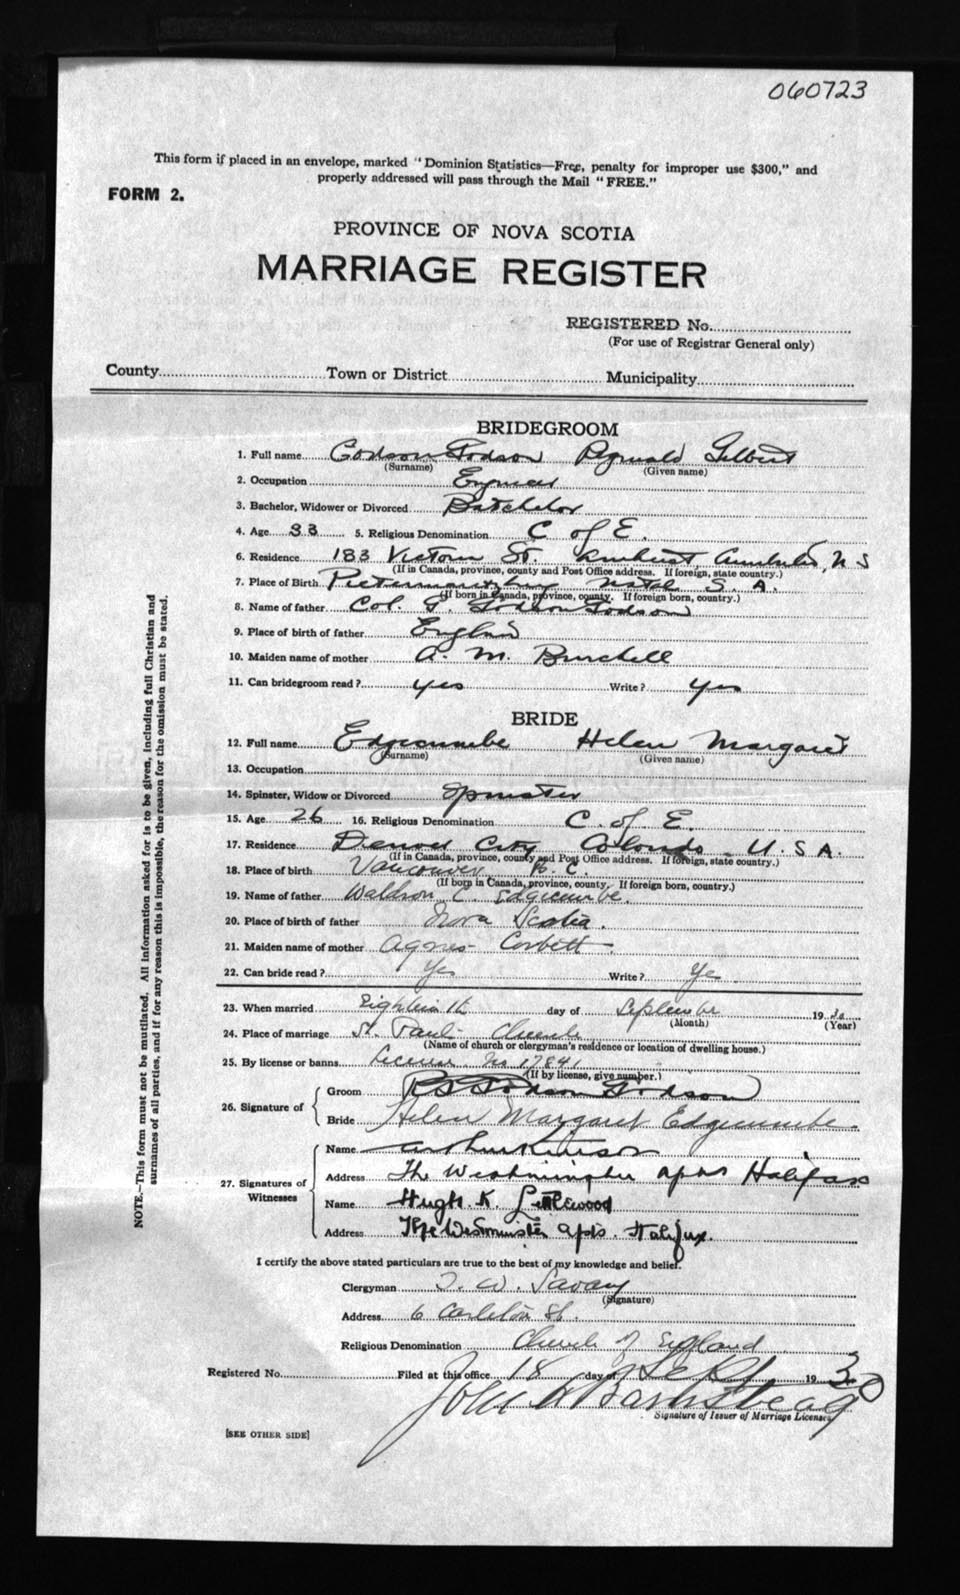 060723
This form if placed in an envelope, marked "Dominion Statistics—Free, penalty for improper use $300," and
properly addressed will pass through the Mail "FREE."
FORM 2.
PROVINCE OF NOVA SCOTIA
MARRIAGE REGISTER
REGISTERED No.
(For use of Registrar General only)
County Town or District Municipality
BRIDEGROOM
1. Full name Godson Godson Reginald Gilbert
(Surname) (Given name)
2. Occupation
3. Bachelor, Widower or Divorced Batchelor
4. Age 33 5. Religious Denomination C of E.
6. Residence 183 Victoria St. Amherst, N S
(If in Canada, province, county and Post Office address. If foreign, state country.)
7. Place of Birth Pietermaritzburg Natal S. A.
(If born in Canada, province, county. If foreign born, country.)
8. Name of father Col. G. Godson Godson
9. Place of birth of father England
10. Maiden name of mother A. M. Burchell
11. Can bridegroom read? yes Write? yes
BRIDE
12. Full name Edgecumbe Helen Margaret
(Surname) (Given name)
13. Occupation
14. Spinster, Widow or Divorced Spinster
15. Age 26 16. Religious Denomination C. of E.
17. Residence Denver City Colorado - U. S A.
(If in Canada, province, county and Post Office address. If foreign, state country.)
18. Place of birth Vancouver B. C.
(If born in Canada, province, county, If foreign born, country.)
19. Name of father Waldron C. Edgecumbe.
20. Place of birth of father Nova Scotia.
21. Maiden name of mother Agnes Corbett
22. Can bride read? Yes Write? Yes
23. When married Eighteenth day of September 1930
(Month) (Year)
24. Place of marriage St. Paul's Church
(Name of church or clergyman's residence or location of dwelling house.)
25. By license or banns License No 17841
(If by license, give number.)
26. Signature of Groom R G Godson Godson
Bride Helen Margaret Edgecumbe.
27. Signatures of Witnesses Name
Address The Westminster apts Halifax
Name Hugh. K. Littlewood
Address The Westminster apts. Halifax.
I certify the above stated particulars are true to the best of my knowledge and belief.
Clergyman T. W. Savary
(Signature)
Address 6 Carleton St.
Religious Denomination Church of England
Registered No. Filed at this office 18 day of Sept 1930
John
Signature of Issuer of Marriage Licenses
[SEE OTHER SIDE]
NOTE.—This form must not be mutilated. All information asked for is to be given, including full Christian and
surnames of all parties, and if for any reason this is impossible, the reason for the omission must be stated.